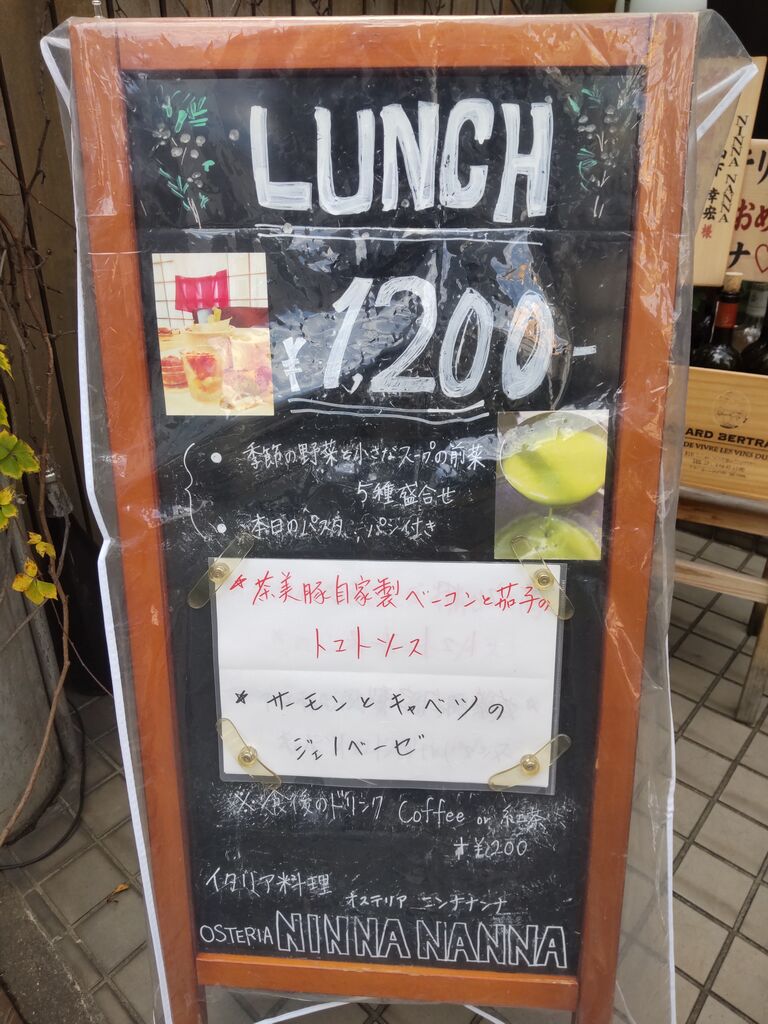 LUNCH
¥1,200-
• 季節の野菜と小さなスープの前菜
5種盛合せ
• 本日のパスタ、パン付き
* 茶美豚自家製ベーコンと茄子の
トマトソース
* サーモンとキャベツの
ジェノベーゼ
※食後のドリンク Coffee or 紅茶
+¥200
イタリア料理
オステリア ニンナナンナ
OSTERIA NINNA NANNA
NINNA NANNA
幸宏様
おめ
ARD BERTRA
DE VIVRE LES VINS DU